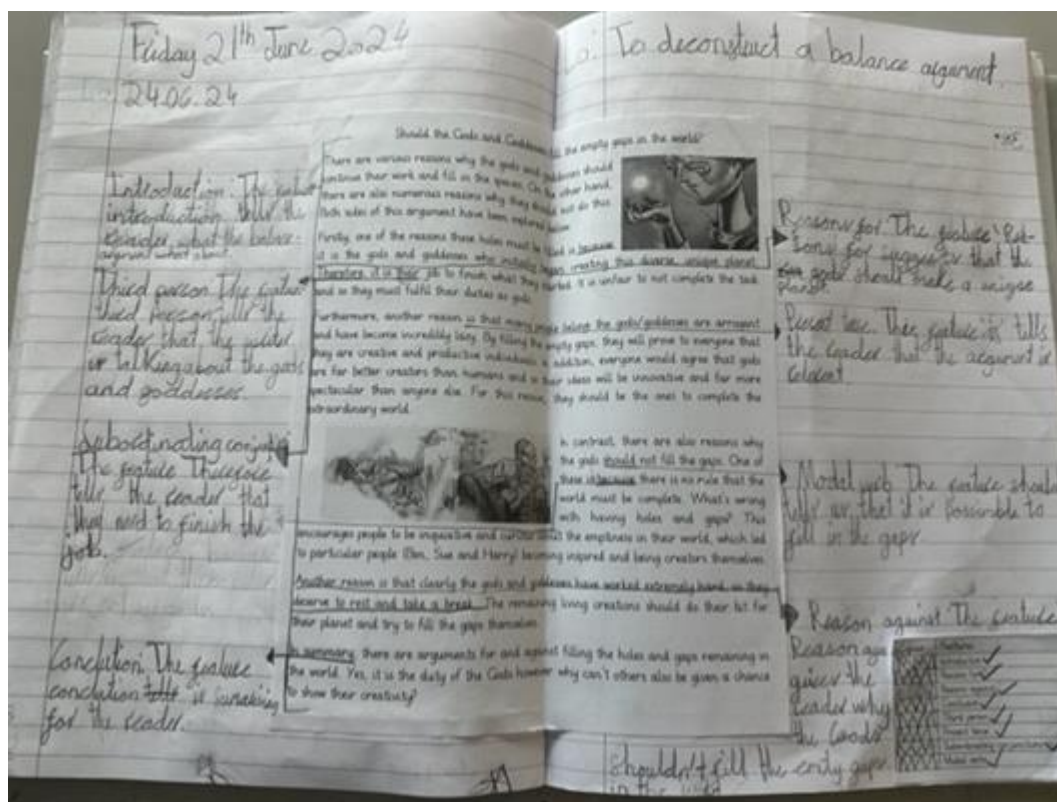 Friday 21th June 2024
24.06.24
Lo: To deconstruct a balance argument.
Introduction. The feature
introduction tells the
reader, what the balance
argument what about.
Third person The feature
third person tells the
reader that the writer
is talking about the gods
and goddesses.
The feature Therefore
tells the reader that
they need to finish the
job.
Conclution. The feature
conclution is
for the reader.
Should the Gods and Goddesses fill the empty gaps in the world?
There are various reasons why the gods and goddesses should
continue their work and fill in the spaces. On the other hand,
there are also numerous reasons why they should not do this.
Both sides of this argument have been explored below.
Firstly, one of the reasons these holes must be filled is because
it is the gods and goddesses who initially began creating this diverse, unique planet.
Therefore, it is their job to finish what they started. It is unfair to not complete the task
and so they must fulfil their duties as gods.
Furthermore, another reason is that many people believe the gods/goddesses are arrogant
and have become incredibly lazy. By filling the empty gaps, they will prove to everyone that
they are creative and productive individuals. In addition, everyone would agree that gods
are far better creators than humans and so their ideas will be innovative and far more
spectacular than anyone else. For this reason, they should be the ones to complete the
extraordinary world.
In contrast, there are also reasons why
the gods should not fill the gaps. One of
these is because there is no rule that the
world must be complete. What's wrong
with having holes and gaps? This
encourages people to be inquisitive and curious about the emptiness in their world, which led
to particular people (Ben, Sue and Harry) becoming inspired and being creators themselves.
Another reason is that clearly the gods and goddesses have worked extremely hard, so they
deserve to rest and take a break. The remaining living creations should do their bit for
their planet and try to fill the gaps themselves.
In summary, there are arguments for and against filling the holes and gaps remaining in
the world. Yes, it is the duty of the Gods however why can't others also be given a chance
to show their creativity?
Reasons for The feature
for that the
gods should make a unique
planet.
The feature is tells
the reader that the argument is
Modal The feature should
tells us that it is possible to
fill in the gaps
Reason against The feature
Reason
gives the
reader why
the Goods
shouldn't fill the gaps
in the